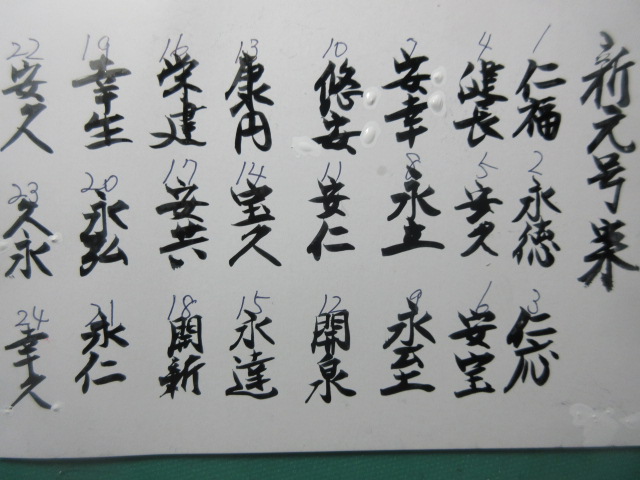 新元号案
1 仁福
2 永徳
3 仁応
4 延長
5 安久
6 安宝
7 安幸
8 永土
9
10 悠安
11 安仁
12 開泉
13 康円
14 宝久
15 永達
16 栄建
17 安共
18 開新
19 幸生
20 永弘
21 永仁
22 安久
23 久永
24 幸久